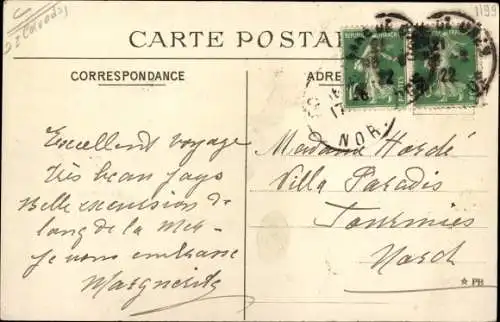 1199
CARTE POSTALE
CORRESPONDANCE
ADRE
Excellent voyage
très beau pays
Belle excursion de
long de la Mer
je vous embrasse
Marguerite
22
22
17
NOR
Madame Hordé
Villa Paradis
Fourmies
Nord
PH